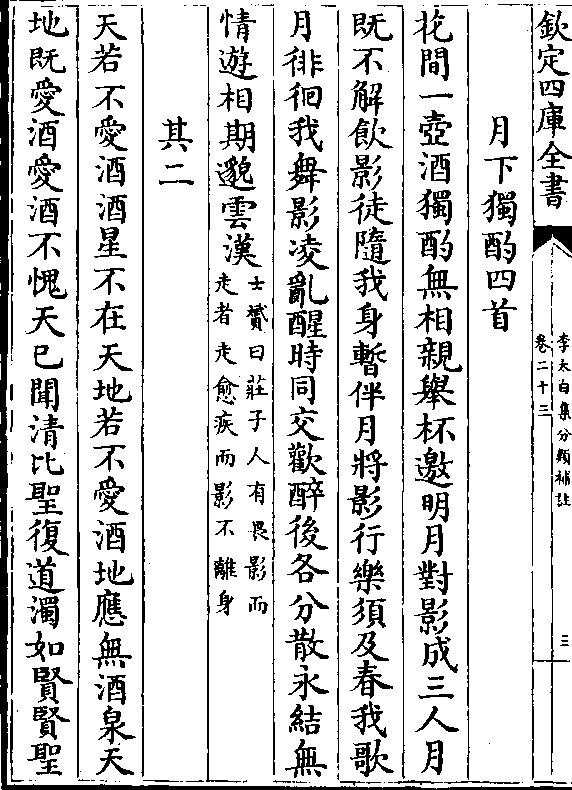 欽定四庫全書
李太白集分類補註
卷二十三
三
月下獨酌四首
花間一壺酒獨酌無相親舉杯邀明月對影成三人月
既不解飲影徒隨我身暫伴月將影行樂須及春我歌
月徘徊我舞影凌亂醒時同交歡醉後各分散永結無
情遊相期邈雲漢
士贇曰莊子人有畏影而
走者走愈疾而影不離身
其二
天若不愛酒酒星不在天地若不愛酒地應無酒泉天
地既愛酒愛酒不愧天已聞清比聖復道濁如賢賢聖